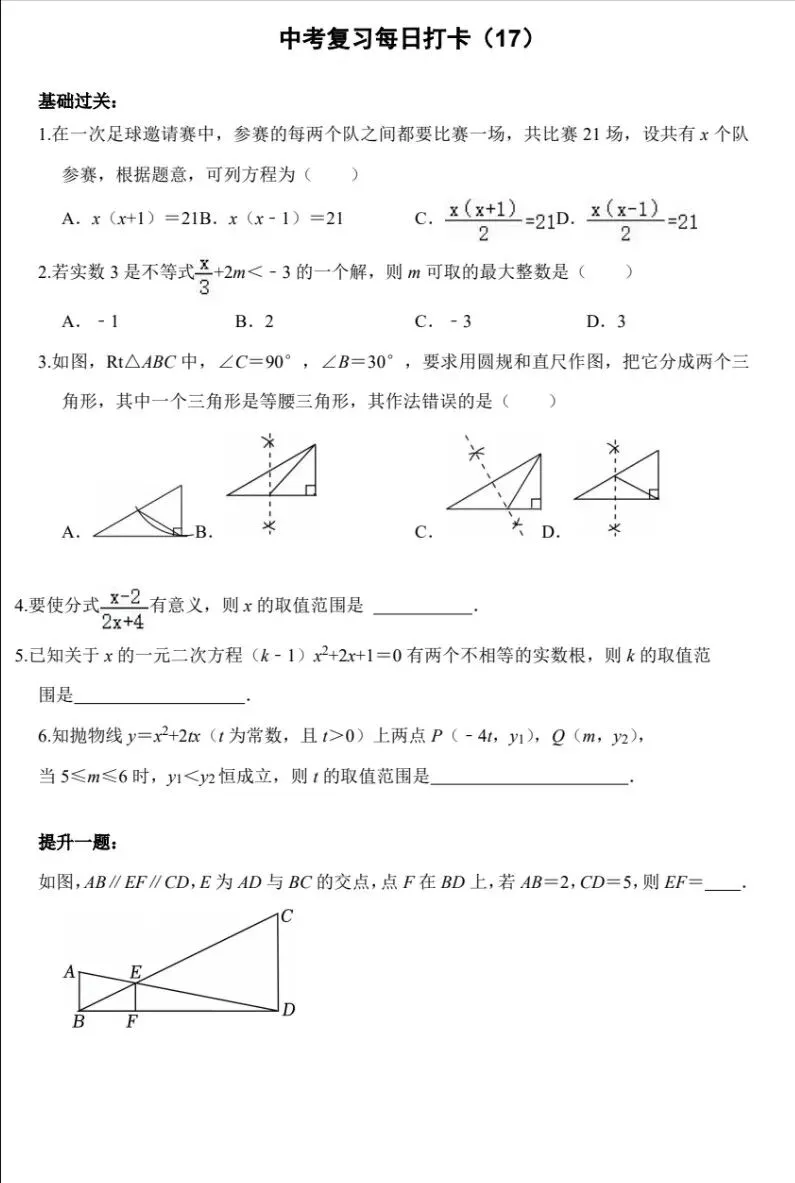 中考复习每日打卡（17）
基础过关：
1.在一次足球邀请赛中，参赛的每两个队之间都要比赛一场，共比赛 21 场，设共有 x 个队
参赛，根据题意，可列方程为（　　）
A．x（x+1）＝21B．x（x﹣1）＝21　C．x(x+1)/2=21D．x(x-1)/2=21
2.若实数 3 是不等式x/3+2m＜﹣3 的一个解，则 m 可取的最大整数是（　　）
A．﹣1　B．2　C．﹣3　D．3
3.如图，Rt△ABC 中，∠C＝90°，∠B＝30°，要求用圆规和直尺作图，把它分成两个三
角形，其中一个三角形是等腰三角形，其作法错误的是（　　）
A．　B．　C．　D．
4.要使分式x-2/2x+4有意义，则 x 的取值范围是 ___________．
5.已知关于 x 的一元二次方程（k﹣1）x²+2x+1＝0 有两个不相等的实数根，则 k 的取值范
围是___________________．
6.知抛物线 y＝x²+2tx（t 为常数，且 t＞0）上两点 P（﹣4t，y₁），Q（m，y₂），
当 5≤m≤6 时，y₁＜y₂ 恒成立，则 t 的取值范围是______________________．
提升一题：
如图，AB∥EF∥CD，E 为 AD 与 BC 的交点，点 F 在 BD 上，若 AB＝2，CD＝5，则 EF＝____．
C
A　E
B　F　D